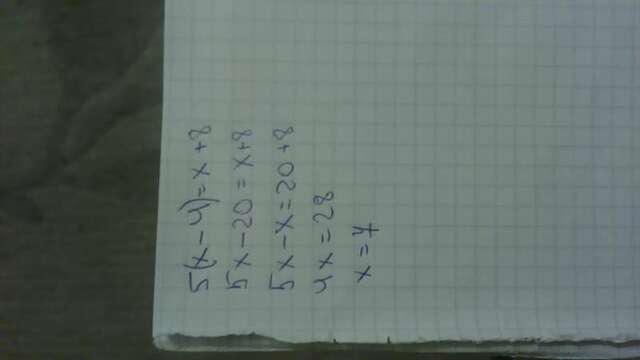 5(x-4)=x+8
5x-20=x+8
5x-x=20+8
4x=28
x=7